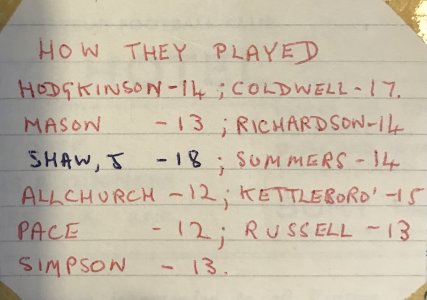 HOW THEY PLAYED
HODGKINSON-14 ; COLDWELL-17.
MASON -13 ; RICHARDSON-14
SHAW, J -18 ; SUMMERS -14
ALLCHURCH -12 ; KETTLEBORO' -15
PACE -12 ; RUSSELL -13
SIMPSON -13.